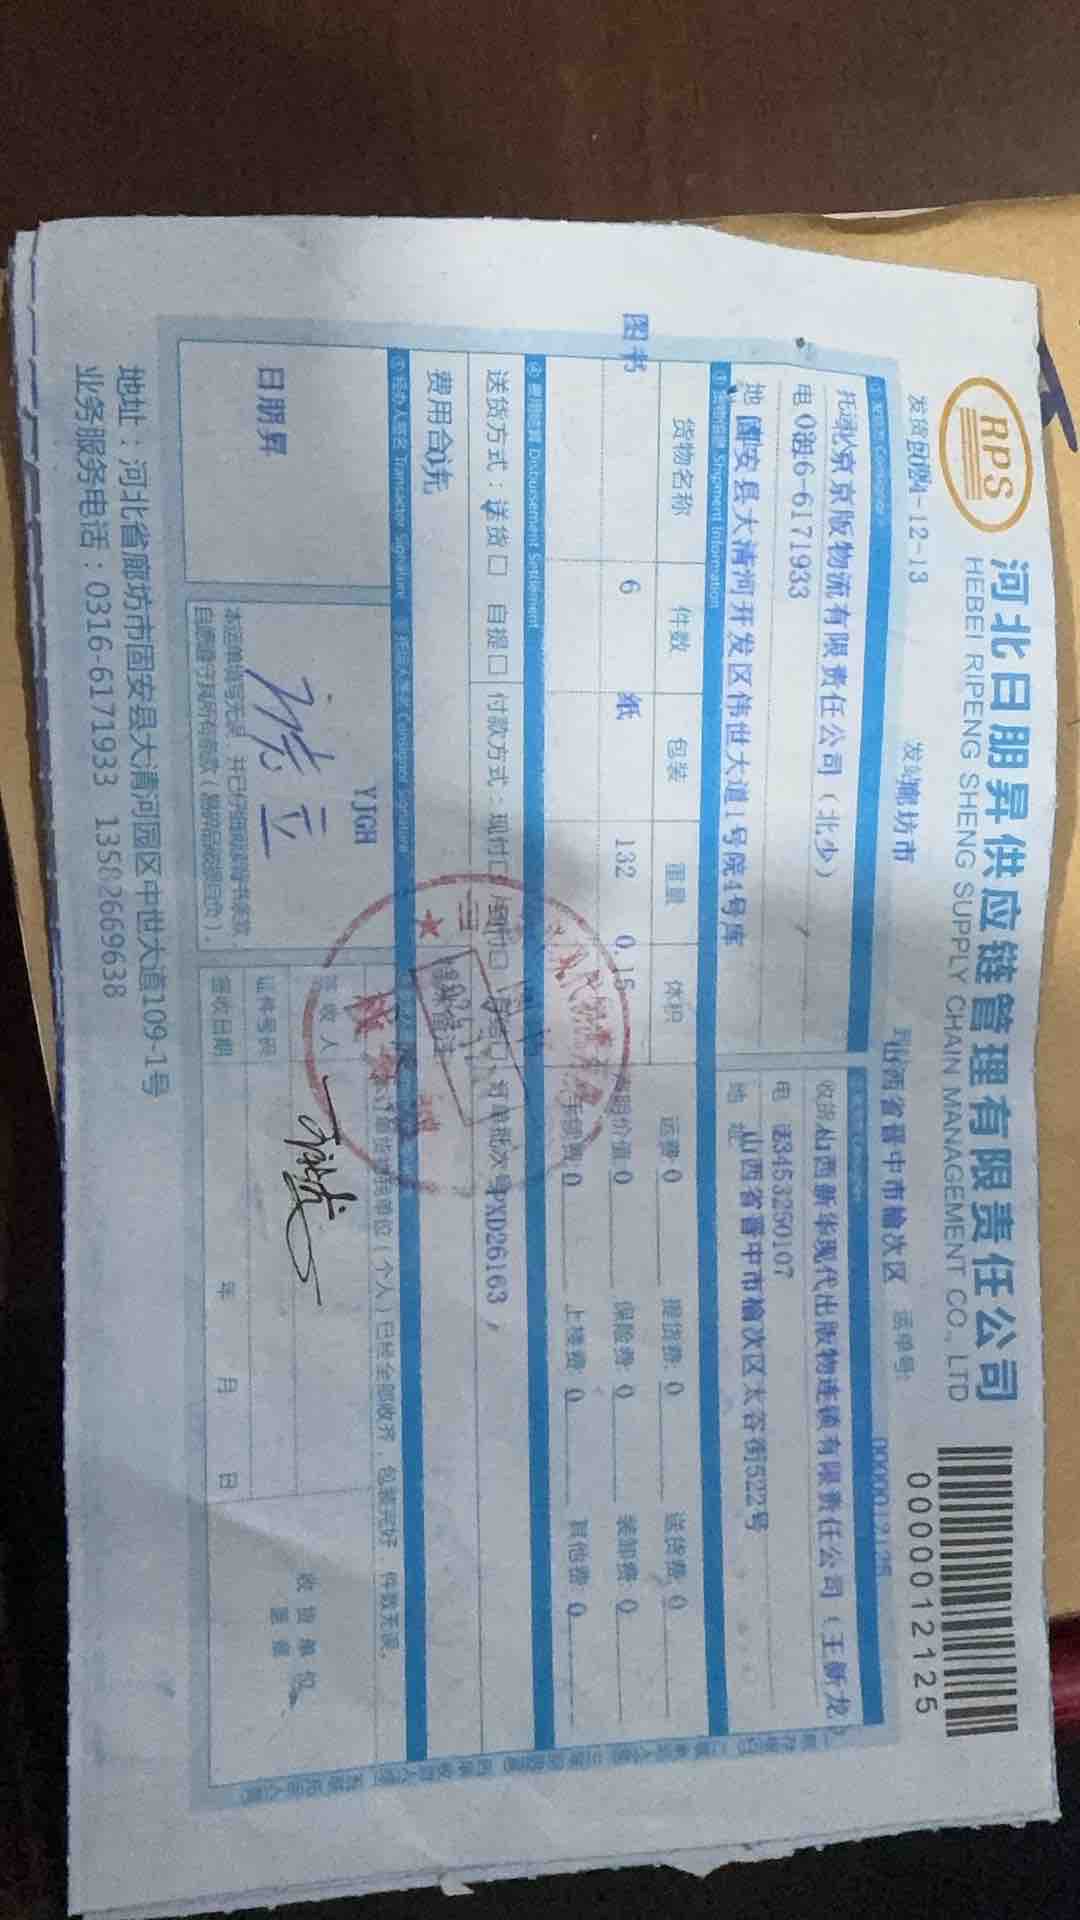 RPS
河北日朋昇供应链管理有限责任公司
HEBEI RIPENG SHENG SUPPLY CHAIN MANAGEMENT CO., LTD
0000012125
2024-12-13
廊坊市
山西省晋中市榆次区
运单号:
0000012125
北京京版物流有限责任公司（北少）
收货
山西新华现代出版物连锁有限责任公司（王新龙）
电
0316-6171933
电
3453250107
地
固安县大清河开发区伟世大道1号院4号库
地
山西省晋中市榆次区太谷街522号
Shipment Information
货物名称
件数
包装
重量
体积
运费 0
提货费: 0
送货费: 0
图书
6
纸
132
0.15
声明价值 0
保险费: 0
装卸费: 0
0
上楼费: 0
其他费 0
④ 费用结算 Disbursement Settlement
送货方式：送货口 自提口
付款方式：现付口
订单批次号PXD26163，
费用合计
⑤ 经办人签名 Transactor Signature
Consignor Signature
YJGH
单位（个人）已经全部收齐，包装完好，件数无误。
日朋昇
收人
证件号码
签收日期
年 月 日
收货单位
盖章
地址：河北省廊坊市固安县大清河园区中世大道109-1号
业务服务电话：0316-6171933 13582669638